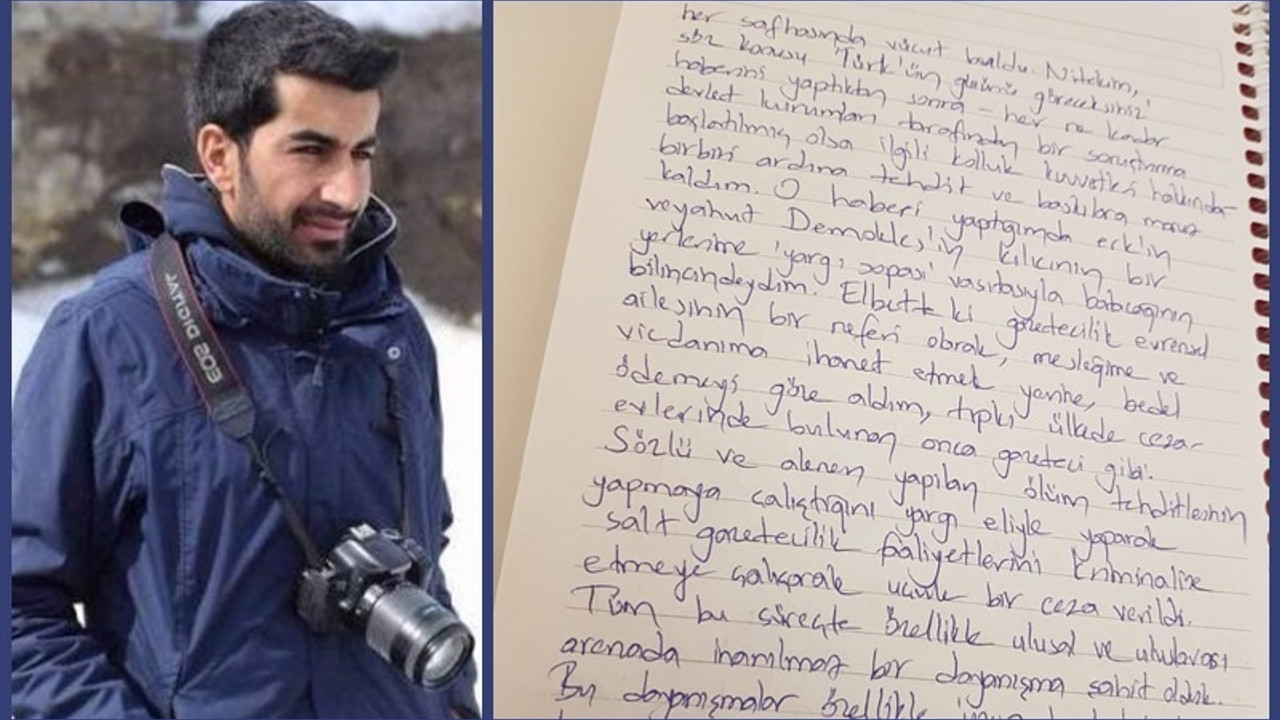 EOS DIGITAL
her safhasında vücut buldu. Nitekim,
söz konusu 'Türk'ün gücünü göreceksiniz'
haberini yaptıktan sonra - her ne kadar
devlet kurumları tarafından bir soruşturma
başlatılmış olsa ilgili kolluk kuvvetleri hakkında-
birbiri ardına tehdit ve baskılara maruz
kaldım. O haberi yaptığımda erk'in
veyahut Demokles'in kılıcının bir
yerlerime 'yargı sopası' vasıtasıyla batacağının
bilincindeydim. Elbette ki gazetecilik evrensel
ailesinin bir neferi olarak, mesleğime ve
vicdanıma ihanet etmek yerine, bedel
ödemeyi göze aldım, tıpkı ülkede ceza-
evlerinde bulunan onca gazeteci gibi.
Sözlü ve alenen yapılan ölüm tehditlerinin
yapmaya çalıştığını yargı eliyle yaparak
salt gazetecilik faliyetlerini kriminalize
etmeye çalışarak ucube bir ceza verildi.
Tüm bu süreçte özellikle ulusal ve uluslarası
arenada inanılmaz bir dayanışma şahit olduk.
Bu dayanışmalar özellikle